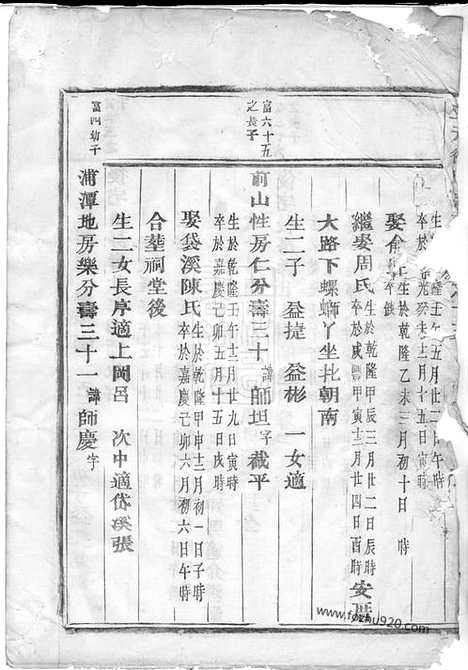 生 隆壬 五月廿二 午時
卒於 光癸 月十五日亥時
娶俞 生於乾隆乙未三月初十日 時
繼娶周氏 生於乾隆甲辰三月廿二日辰時
卒於咸豐甲寅十二月廿四日酉時 安厝
大路下螺螄丫坐北朝南
生二子 益捷 益彬 一女適
富六十五
之長子
前山性房仁分壽三十 諱師坦 字截平
生於乾隆壬午十二月廿九日寅時
卒於嘉慶己卯五月十五日戌時
娶袋溪陳氏 生於乾隆甲申十二月初一日子時
卒於嘉慶己卯六月初六日午時
合塟祠堂後
生二女長序適上岡呂 次中適岱溪張
富四幼子
浦潭地房樂分壽三十一 諱師慶 字
www.fozhu920.com